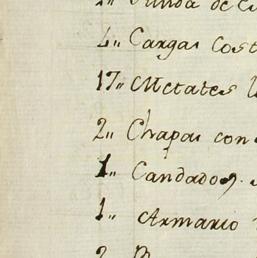 de
4,, Cargas Cost
17,, Metates
2,, Chapas con
1,, Candados.
1,, Armario
2